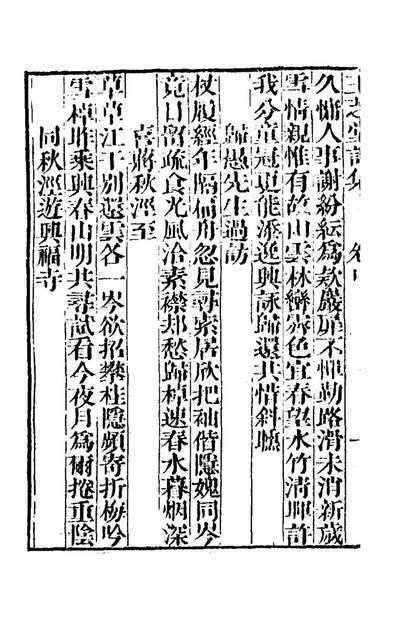 久慵人事謝紛紜為款巖扉不憚勤路滑未消新歲
雪情親惟有故山雲林巒靜色宜春望水竹清暉許
我分童冠更能添逸興詠歸還共惜斜曛
歸愚先生過訪
杖履經年隔偏舟忽見尋索居欣把袖偕隱媿同岑
竟日留疏食光風洽素襟却愁歸棹速春水暮烟深
喜蔣秋涇至
草草江干別還雲各一岑欲招攀桂隱頻寄折梅吟
雪棹昨乘興春山明共尋試看今夜月為爾捲重陰
同秋涇遊興福寺